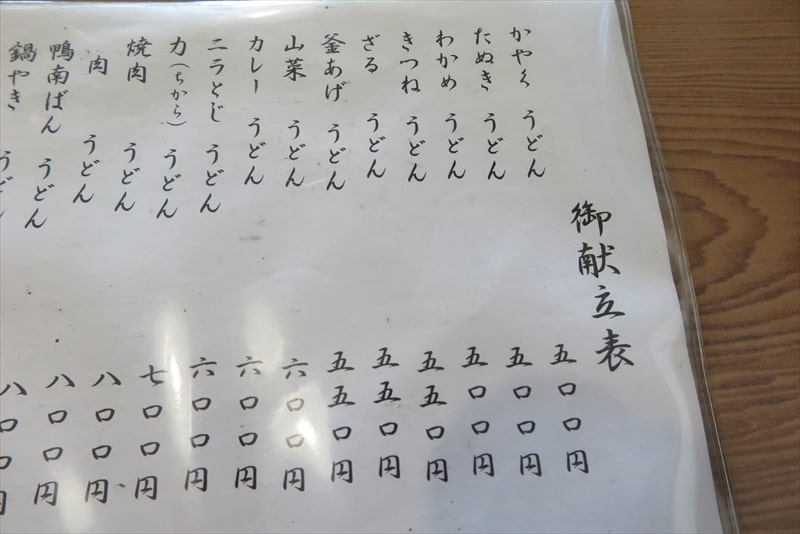 御献立表
かやく うどん 五〇〇円
たぬき うどん 五〇〇円
わかめ うどん 五〇〇円
きつね うどん 五五〇円
ざる うどん 五五〇円
釜あげ うどん 五五〇円
山菜 うどん 六〇〇円
カレー うどん 六〇〇円
ニラとじ うどん 六〇〇円
力(ちから) うどん 七〇〇円
焼肉 うどん 八〇〇円
肉 うどん 八〇〇円
鴨南ばん うどん 八〇〇円
鍋やき うどん